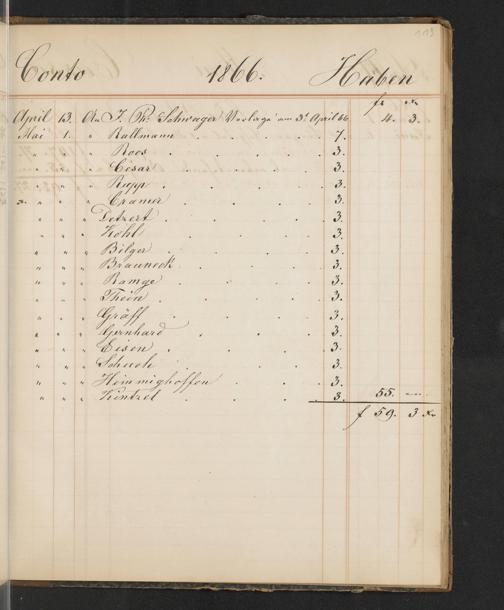 113
Conto 1866. Haben
fl xr
April 13. An J. Ph. Schwager Vorlage am 3t April 66 4. 3.
Mai 1. " Rallmann 7.
" " " Roos 3.
" " " Cesar 3.
" " " Rupp 3.
" " " Cramer 3.
" " " Detzert 3.
" " " Kohl 3.
" " " Bilger 3.
" " " Brauneck 3.
" " " Ramge 3.
" " " Thein 3.
" " " Gräff 3.
" " " Gernhard 3.
" " " Eisen 3.
" " " Schuck 3.
" " " Himmighoffen 3.
" " " Kintzel 3. 55. —
f 59. 3 xr